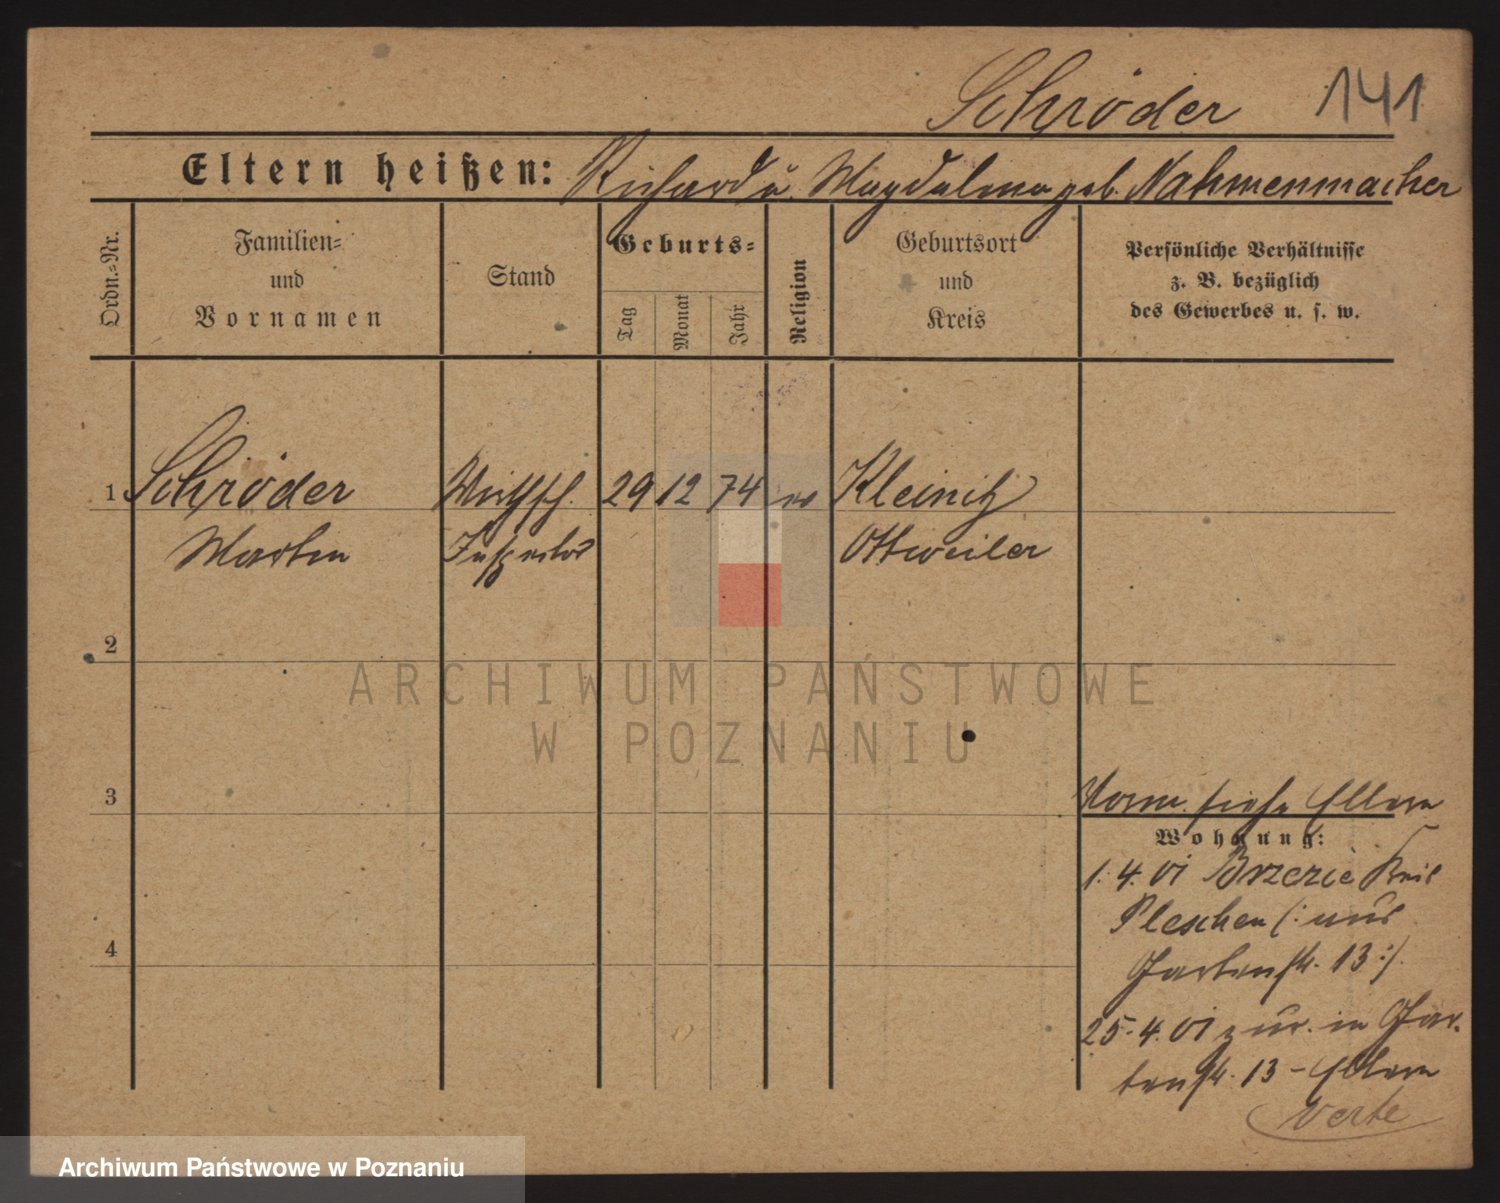 Schröder 141
Eltern heißen: Richard u. Magdalena geb. Nahmenmacher
Ordn.-Nr.
Familien-
und
Vornamen
Stand
Geburts-
Tag
Monat
Jahr
Religion
Geburtsort
und
Kreis
Persönliche Verhältnisse
z. B. bezüglich
des Gewerbes u. s. w.
1 Schröder Wirthsch. 29 12 74 ev Kleinitz
Martin Inspector Ottweiler
2
ARCHIWUM PAŃSTWOWE
W POZNANIU
3
Vorm. siehe Eltern
Wohnung:
1. 4. 01 Brzezie Kreis
Pleschen (: aus
4
Gartenstr. 13 :).
25. 4. 01 zur. in Gar-
tenstr. 13 - Eltern
verte
Archiwum Państwowe w Poznaniu